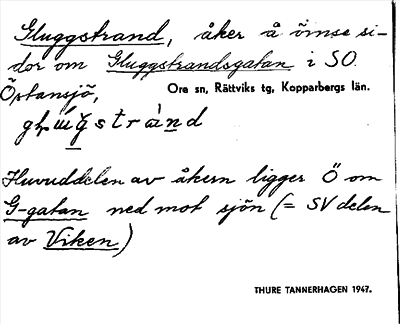 Gluggstrand, åker å ömse si-
dor om Gluggstrandsgatan i SO.
Öptansjö, Ore sn, Rättviks tg, Kopparbergs län.
Huvuddelen av åkern ligger Ö om
G-gatan ned mot sjön (= SV delen
av Viken)
THURE TANNERHAGEN 1947.